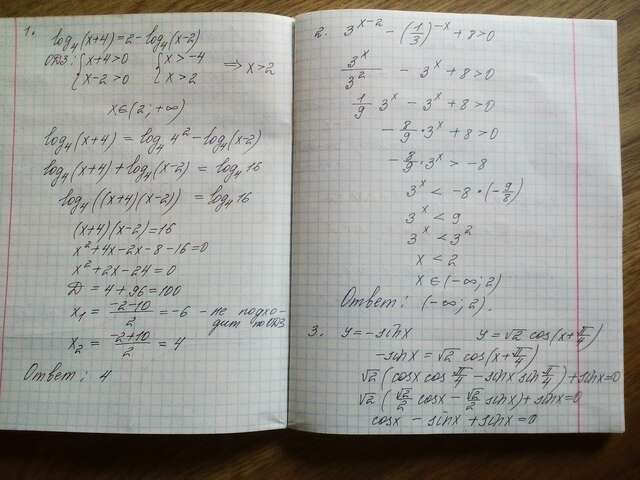 1.
log₄(x+4)=2-log₄(x-2)
ОДЗ: {x+4>0 {x>-4
{x-2>0 {x>2 ⇒ x>2
x∈(2;+∞)
log₄(x+4) = log₄4²-log₄(x-2)
log₄(x+4)+log₄(x-2) = log₄16
log₄((x+4)(x-2)) = log₄16
(x+4)(x-2)=16
x²+4x-2x-8-16=0
x²+2x-24=0
D = 4+96=100
x₁ = (-2-10)/2 = -6 - не подхо-
дит по ОДЗ
x₂ = (-2+10)/2 = 4
Ответ: 4
2. 3^(x-2) - (1/3)^(-x) + 8>0
3^x/3² - 3^x + 8>0
1/9 3^x - 3^x + 8>0
-8/9·3^x + 8>0
-8/9·3^x > -8
3^x < -8·(-9/8)
3^x < 9
3^x < 3²
x < 2
x∈(-∞;2)
Ответ: (-∞;2).
3. y=-sinx y=√2 cos(x+π/4)
-sinx = √2 cos(x+π/4)
√2(cosx cos π/4 - sinx sin π/4)+sinx=0
√2(√2/2 cosx - √2/2 sinx)+sinx=0
cosx - sinx + sinx=0